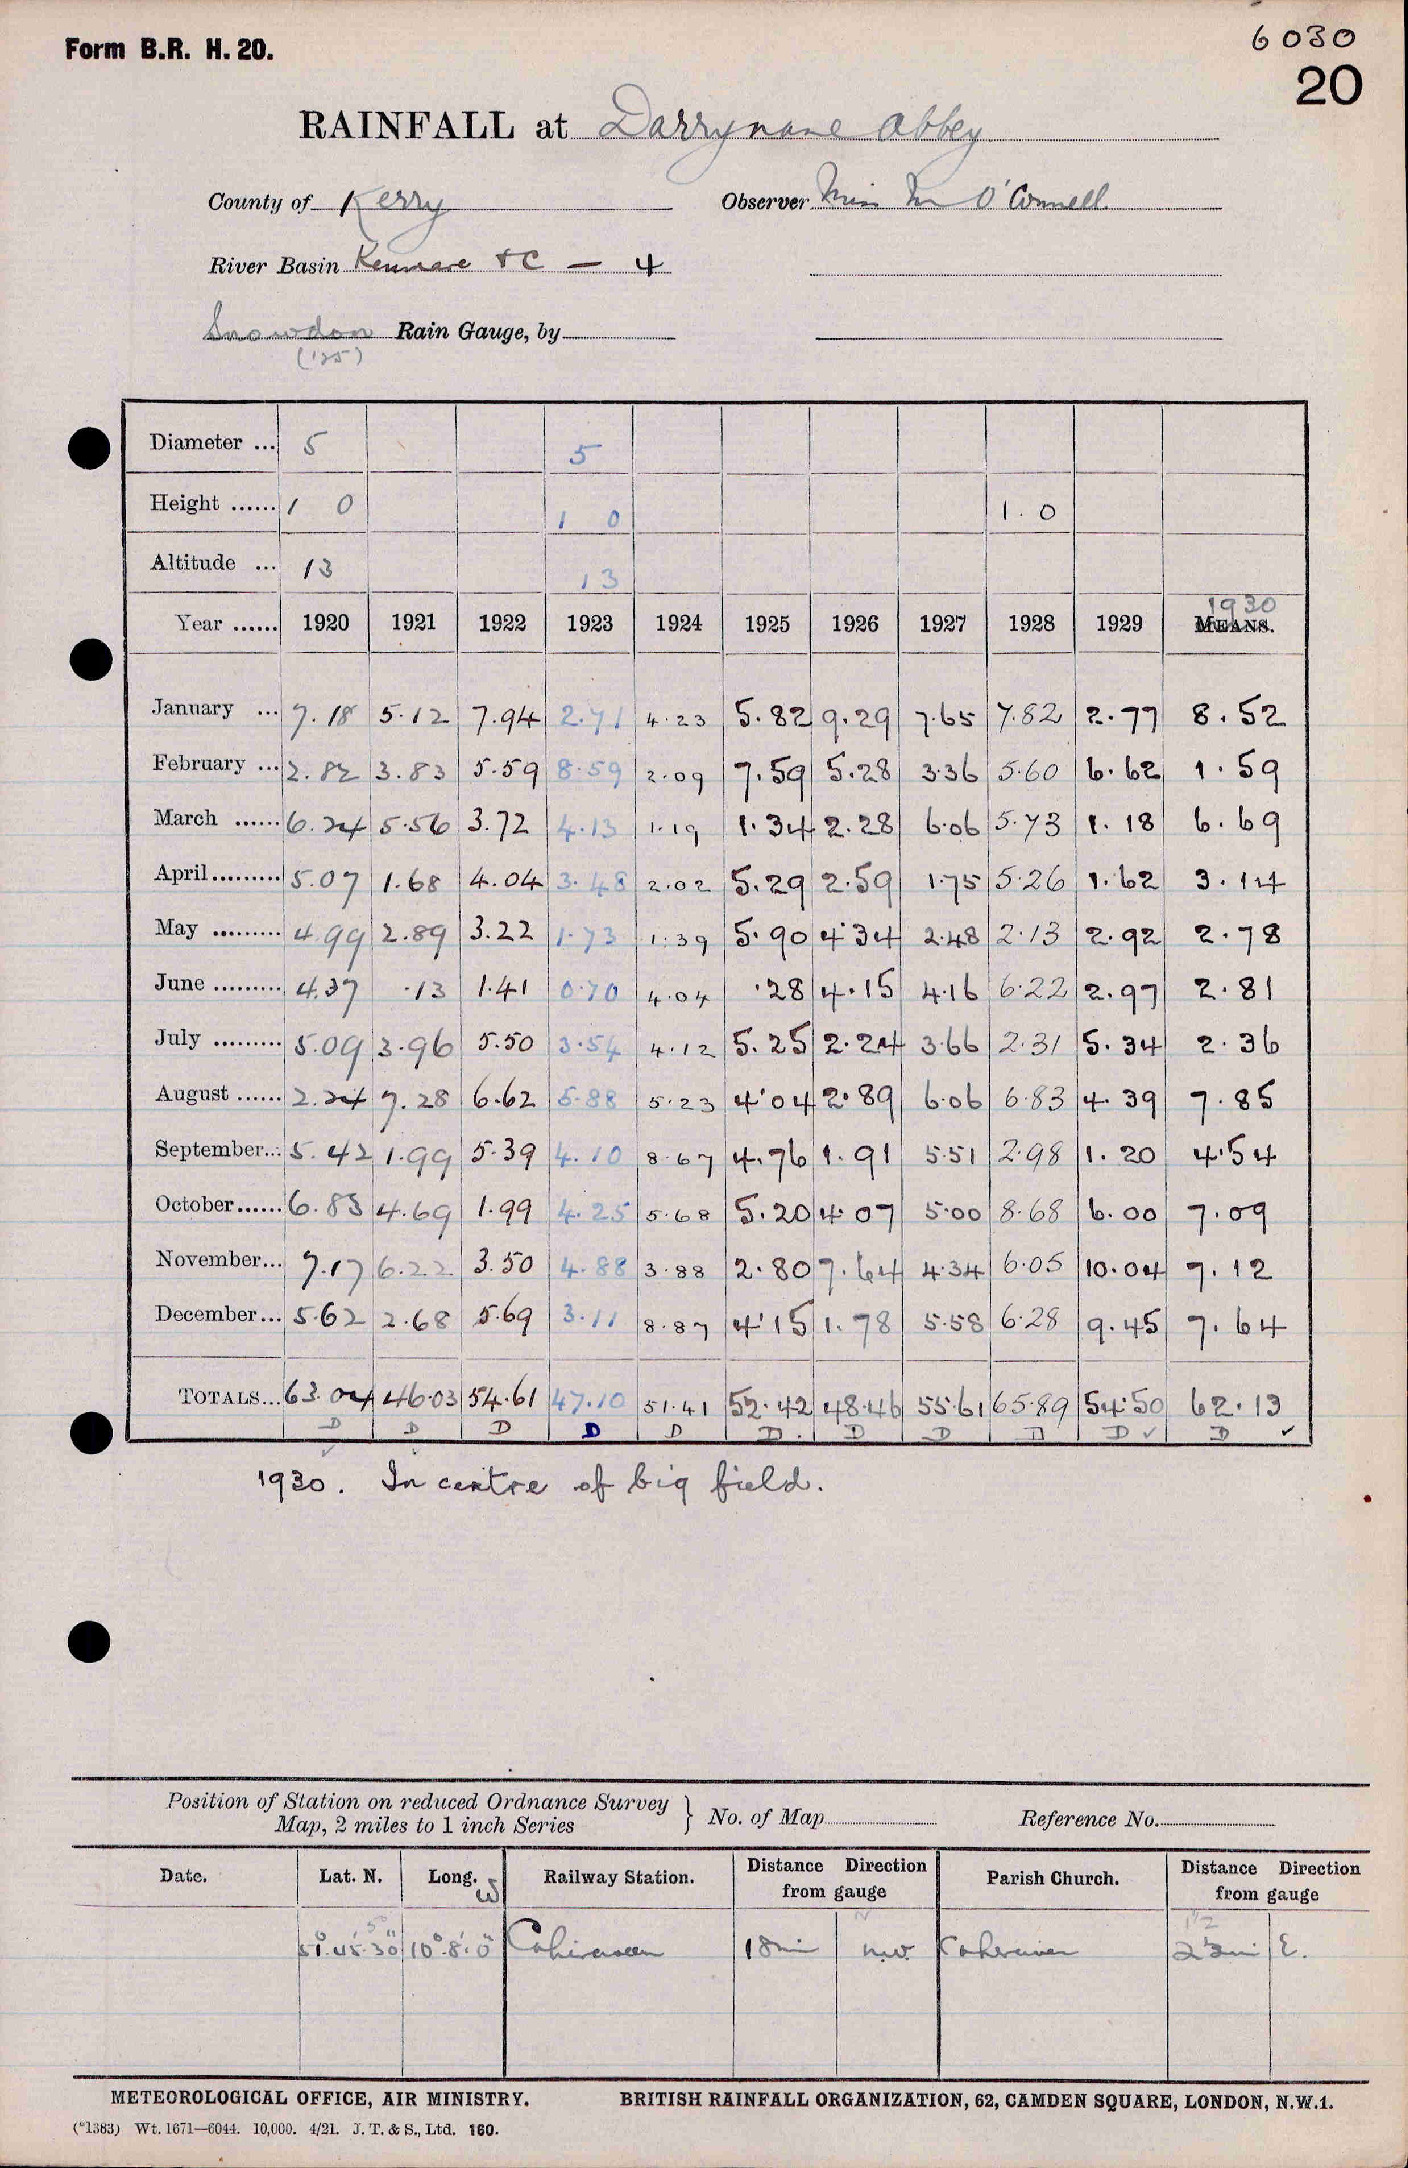 Form B.R. H. 20.
6030
20
RAINFALL at Darrynane Abbey
County of Kerry Observer Miss M O'Connell
River Basin Kenmare &C — 4
Snowdon Rain Gauge, by
('25)
Diameter ... 5 5
Height ...... 1 0 1 0 1. 0
Altitude ... 13 13
1930
Year ...... 1920 1921 1922 1923 1924 1925 1926 1927 1928 1929 MEANS.
January ... 7.18 5.12 7.94 2.71 4.23 5.82 9.29 7.65 7.82 2.77 8.52
February ... 2.82 3.83 5.59 8.59 2.09 7.59 5.28 3.36 5.60 6.62 1.59
March ...... 6.24 5.56 3.72 4.13 1.19 1.34 2.28 6.06 5.73 1.18 6.69
April......... 5.07 1.68 4.04 3.48 2.02 5.29 2.59 1.75 5.26 1.62 3.14
May ......... 4.99 2.89 3.22 1.73 1.39 5.90 4.34 2.48 2.13 2.92 2.78
June ......... 4.37 .13 1.41 0.70 4.04 .28 4.15 4.16 6.22 2.97 2.81
July ......... 5.09 3.96 5.50 3.54 4.12 5.25 2.24 3.66 2.31 5.34 2.36
August ...... 2.24 7.28 6.62 5.88 5.23 4.04 2.89 6.06 6.83 4.39 7.85
September... 5.42 1.99 5.39 4.10 8.67 4.76 1.91 5.51 2.98 1.20 4.54
October...... 6.83 4.69 1.99 4.25 5.68 5.20 4.07 5.00 8.68 6.00 7.09
November... 7.17 6.22 3.50 4.88 3.88 2.80 7.64 4.34 6.05 10.04 7.12
December... 5.62 2.68 5.69 3.11 8.87 4.15 1.78 5.58 6.28 9.45 7.64
TOTALS... 63.04 46.03 54.61 47.10 51.41 52.42 48.46 55.61 65.89 54.50 62.13
D D D D D D D D D D ✓ D ✓
1930. In centre of big field.
Position of Station on reduced Ordnance Survey
Map, 2 miles to 1 inch Series } No. of Map Reference No.
Date. Lat. N. Long. W Railway Station. Distance Direction from gauge Parish Church. Distance Direction from gauge
51°.45'.30" 10°.8'.0" Cahirciveen 18 mi N.W. E.
METEOROLOGICAL OFFICE, AIR MINISTRY. BRITISH RAINFALL ORGANIZATION, 62, CAMDEN SQUARE, LONDON, N.W.1.
(*1383) Wt. 1671—6044. 10,000. 4/21. J. T. & S., Ltd. 160.